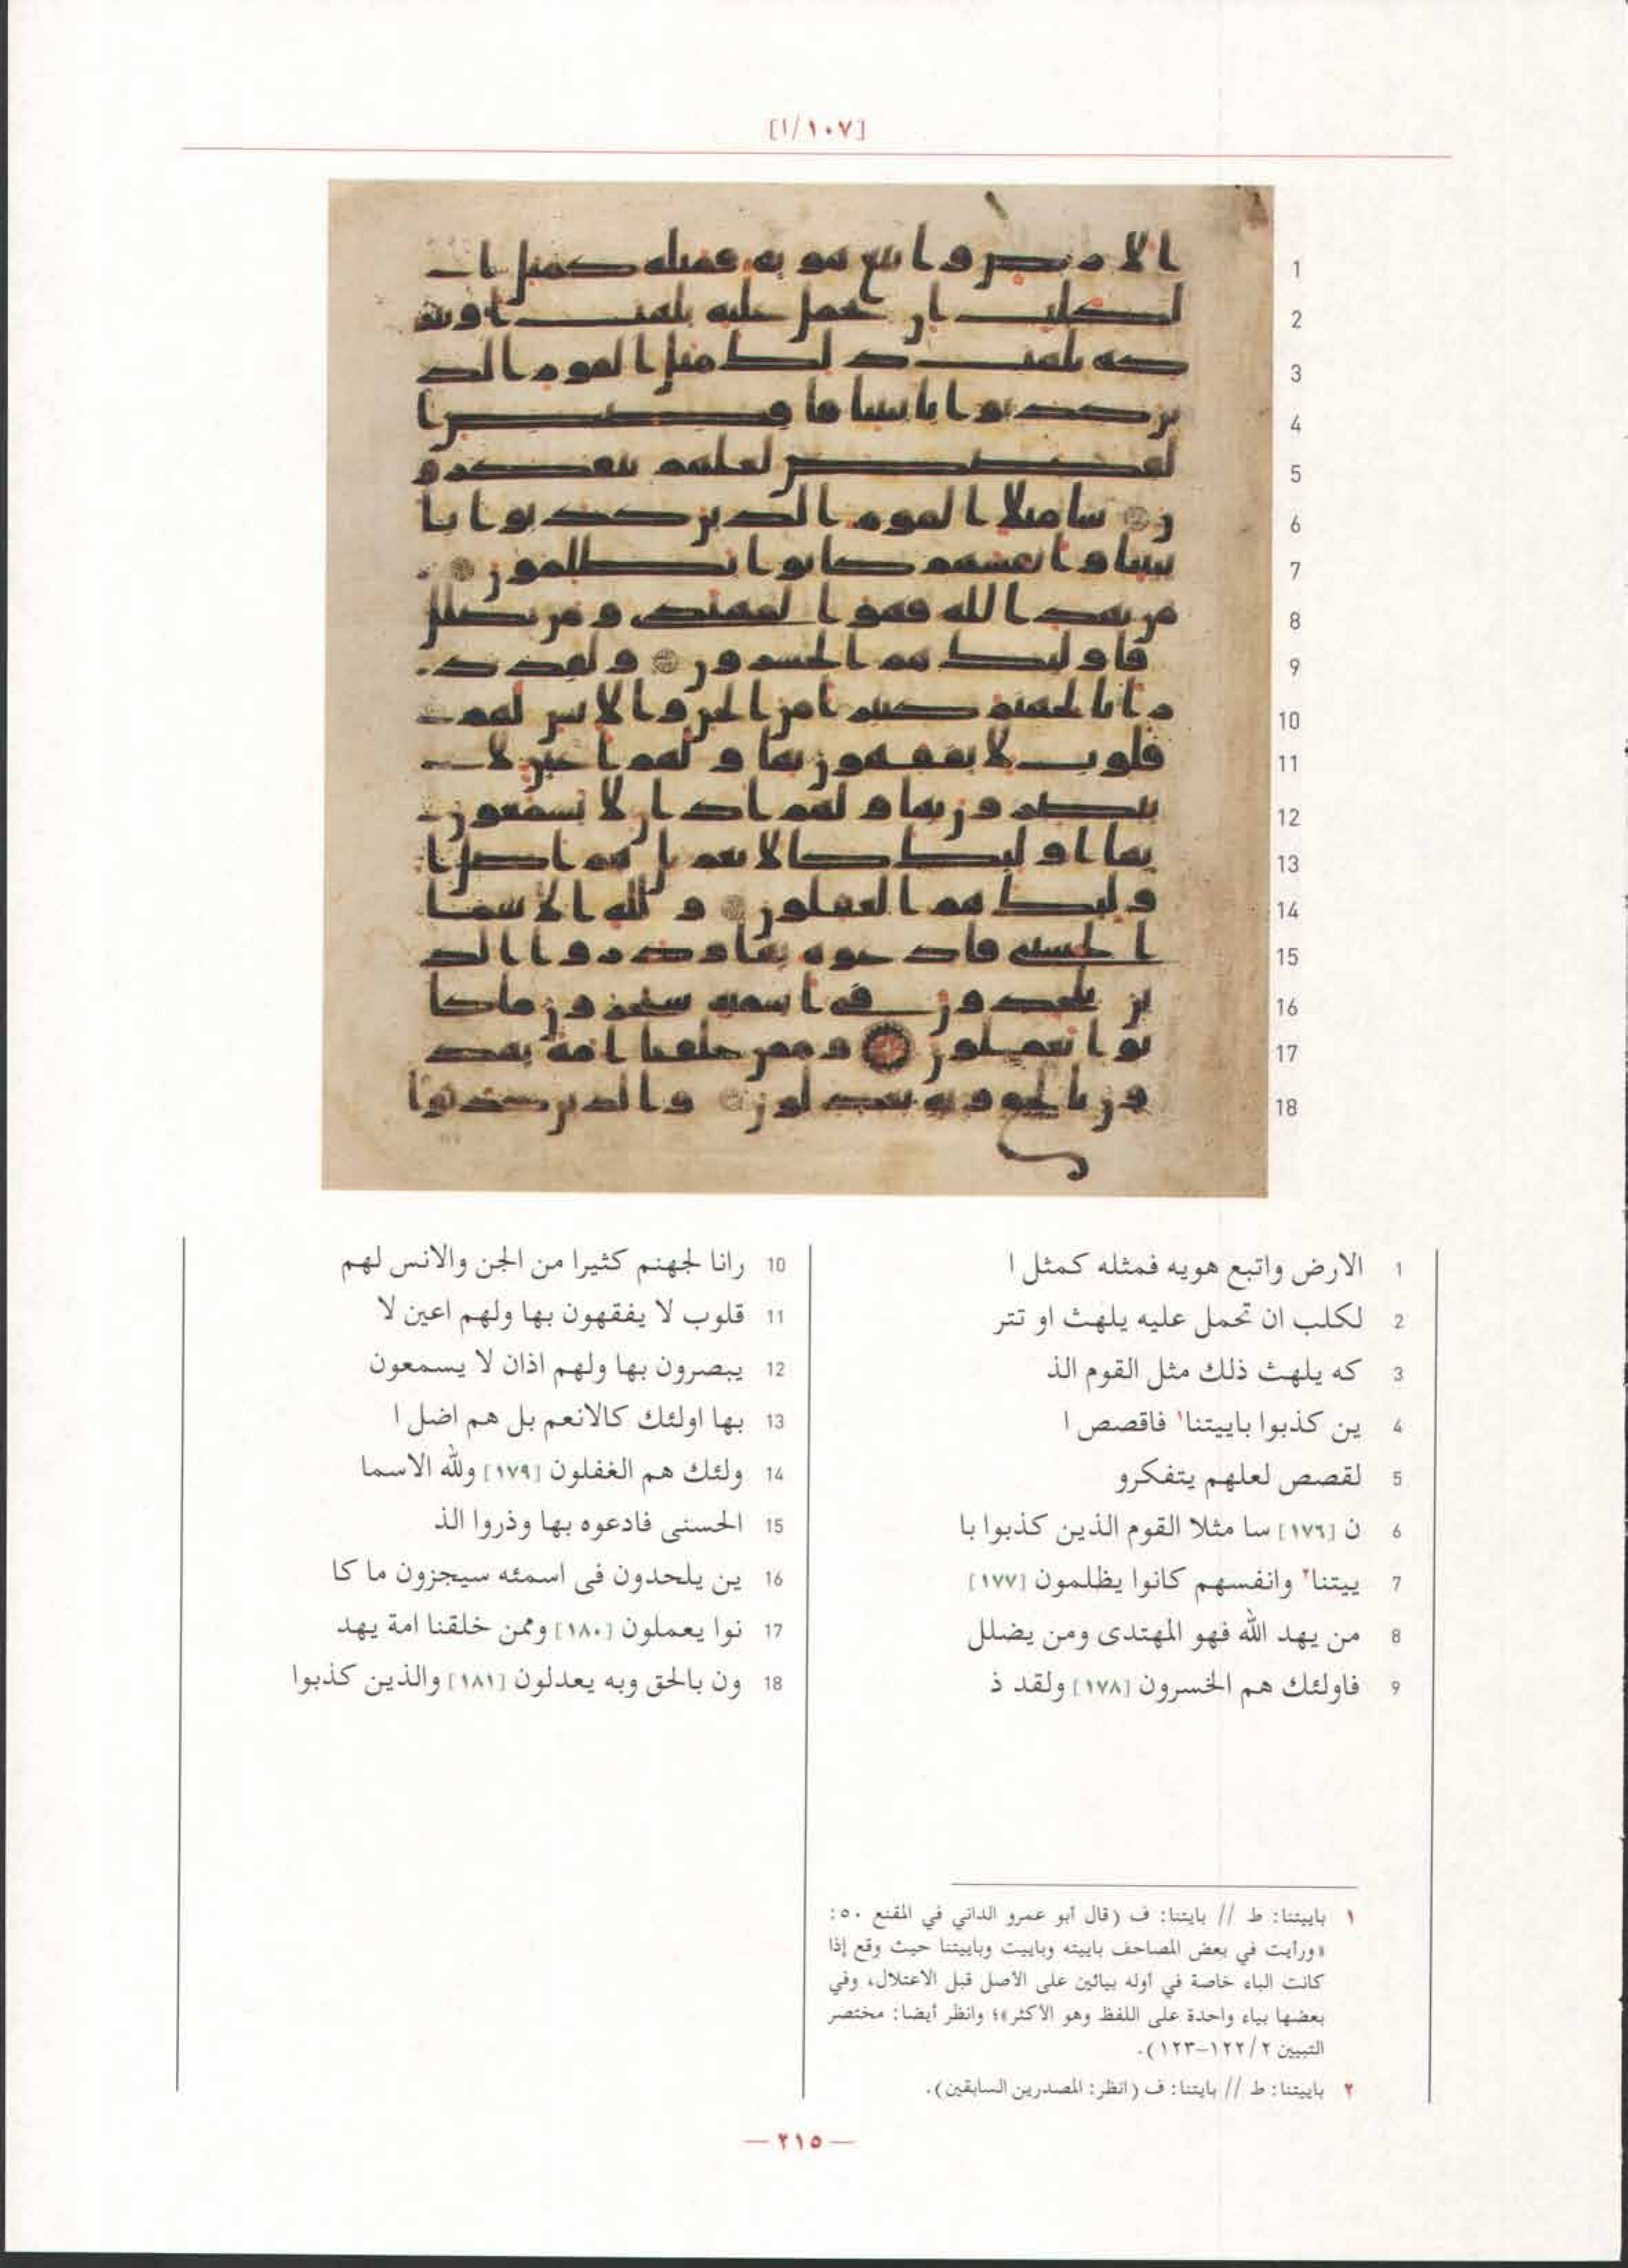 [١٠٧/ا]
1 الارض واتبع هويه فمثله كمثل ا
2 لكلب ان تحمل عليه يلهث او تتر
3 كه يلهث ذلك مثل القوم الذ
4 ين كذبوا باييتنا١ فاقصص ا
5 لقصص لعلهم يتفكرو
6 ن [١٧٦] سا مثلا القوم الذين كذبوا با
7 ييتنا٢ وانفسهم كانوا يظلمون [١٧٧]
8 من يهد الله فهو المهتدى ومن يضلل
9 فاولئك هم الخسرون [١٧٨] ولقد ذ
10 رانا لجهنم كثيرا من الجن والانس لهم
11 قلوب لا يفقهون بها ولهم اعين لا
12 يبصرون بها ولهم اذان لا يسمعون
13 بها اولئك كالانعم بل هم اضل ا
14 ولئك هم الغفلون [١٧٩] ولله الاسما
15 الحسنى فادعوه بها وذروا الذ
16 ين يلحدون فى اسمئه سيجزون ما كا
17 نوا يعملون [١٨٠] وممن خلقنا امة يهد
18 ون بالحق وبه يعدلون [١٨١] والذين كذبوا
١ باييتنا: ط // بايتنا: ف (قال أبو عمرو الداني في المقنع ٥٠:
«ورأيت في بعض المصاحف باييته وباييت وباييتنا حيث وقع إذا
كانت الباء خاصة في أوله بيائين على الأصل قبل الاعتلال، وفي
بعضها بياء واحدة على اللفظ وهو الأكثر»؛ وانظر أيضا: مختصر
التبيين ٢/ ١٢٢-١٢٣).
٢ باييتنا: ط // بايتنا: ف (انظر: المصدرين السابقين).
— ٢١٥ —